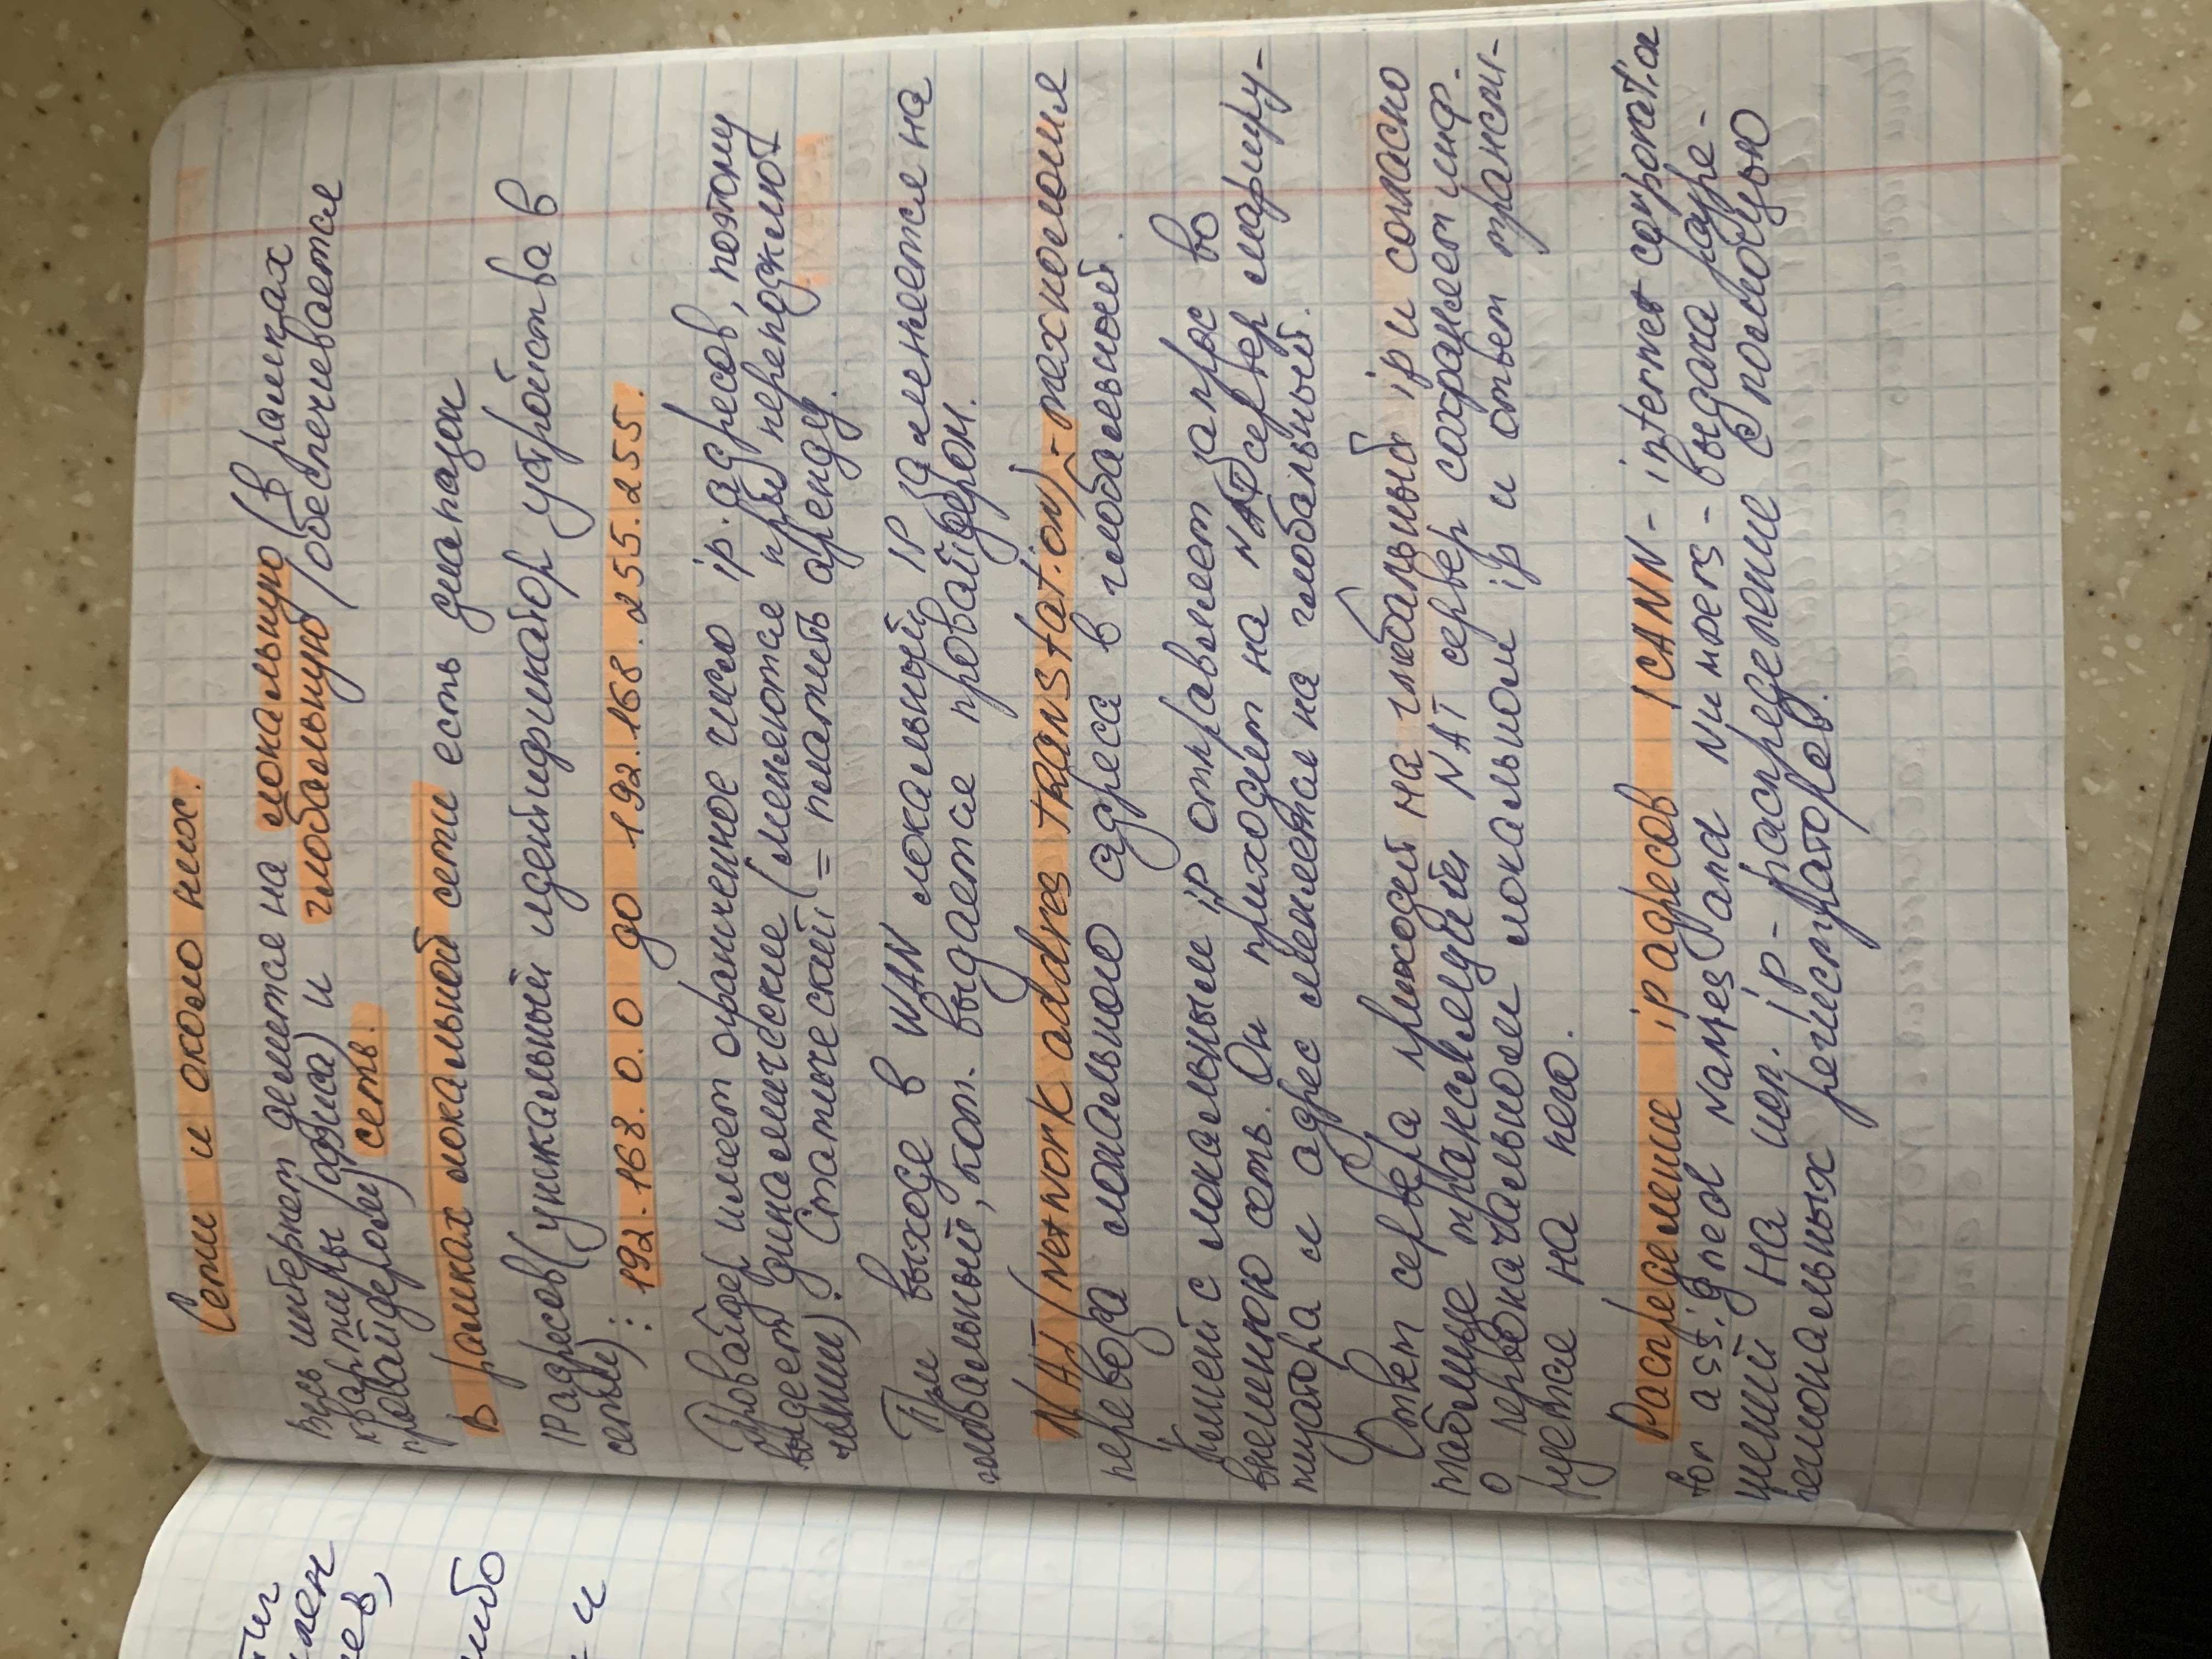 Сети и около них.
Весь интернет делится на локальную (в рамках
квартиры/офиса) и глобальную (обеспечивается
провайдером) сеть.
В рамках локальной сети есть диапазон
IP адресов (уникальный идентификатор устройства в
сети):
: 192.168.0.0 до 192.168.255.255.
Провайдер имеет ограниченное число ip. адресов, поэтому
выдает динамические (меняются при переподклю-
чении). Статический = платить аренду.
При выходе в WAN локальный IP заменяется на
глобальный, кот. выдается провайдером.
NAT (Network addres translation) - технология
перевода локального адреса в глобальный.
Клиент с локальным ip отправляет запрос во
внешнюю сеть. Он приходит на NAT сервер маршру-
тизатора и адрес меняется на глобальный.
Ответ сервера приходит на глобальный ip и согласно
таблице трансляций NAT сервер сохраняет инф.
о первоначальном локальном ip и ответ трансли-
руется на него.
Распределение ip адресов ICANN - internet corporation
for assigned Names and Numbers - выдача разре-
шений на исп. ip - распределение с помощью
региональных регистраторов.
либо
и